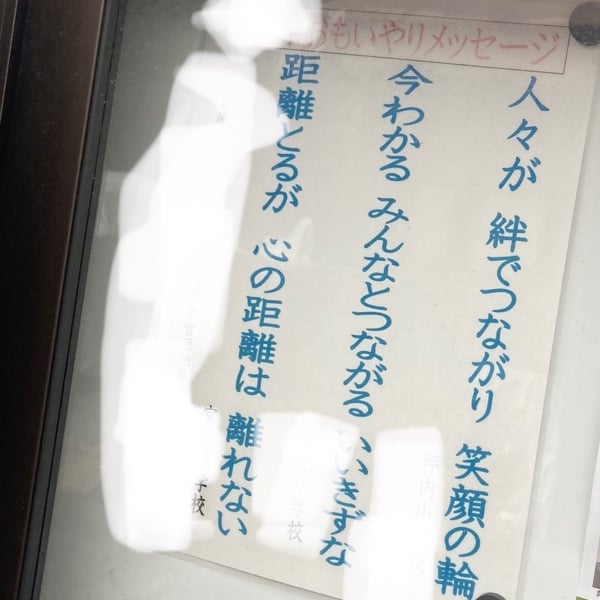 おもいやりメッセージ
人々が 絆でつながり 笑顔の輪
坪内小 校
今わかる みんなとつながる いいきずな
小学校
距離とるが 心の距離は 離れない
宮 学校